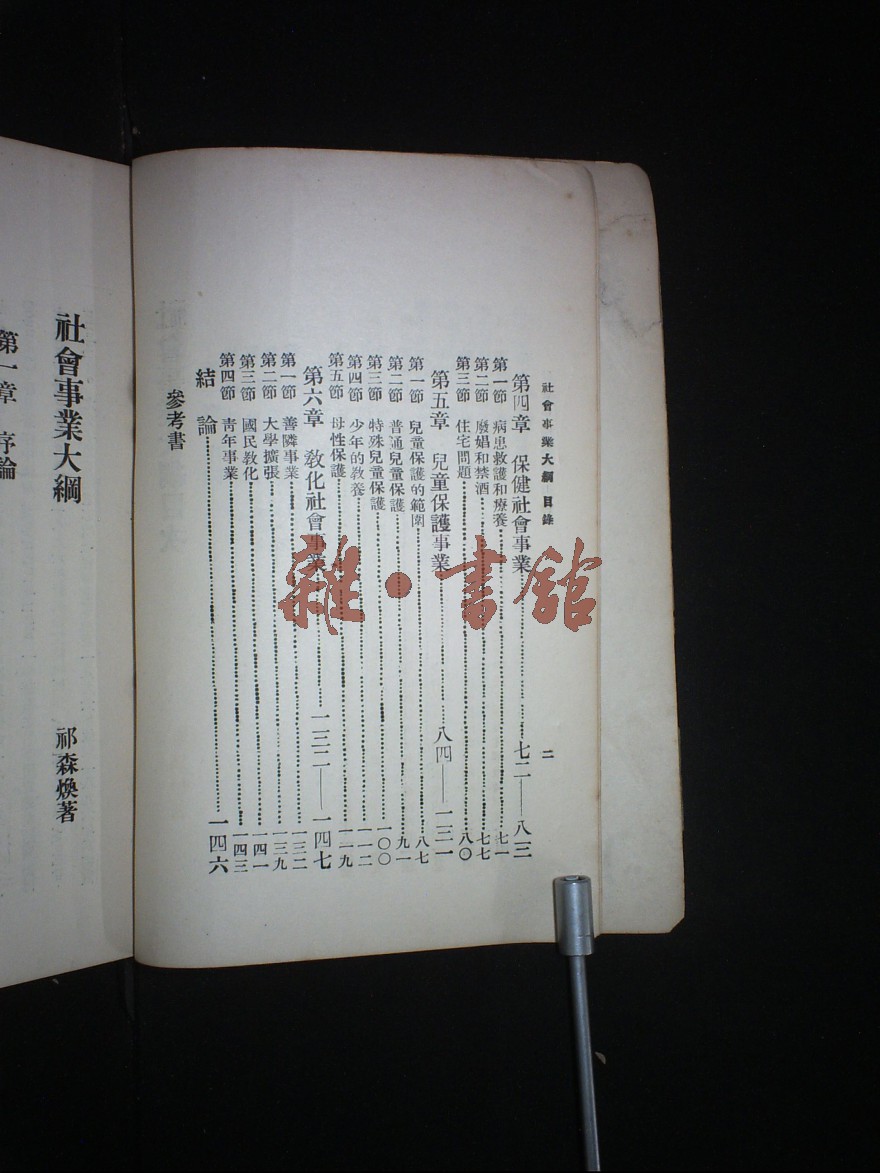 社會事業大綱 目錄 二
第四章 保健社會事業 七二——八三
第一節 病患救護和療養 七一
第二節 廢娼和禁酒 七七
第三節 住宅問題 八〇
第五章 兒童保護事業 八四——一三一
第一節 兒童保護的範圍 八七
第二節 普通兒童保護 九一
第三節 特殊兒童保護 一〇〇
第四節 少年的教養 一一二
第五節 母性保護 一二九
第六章 教化社會事業 一三二——一四七
第一節 善隣事業 一三二
第二節 大學擴張 一三九
第三節 國民教化 一四一
第四節 青年事業 一四三
結論 一四六
參考書
社會事業大綱
祁森煥著
第一章 序論
雜·書館